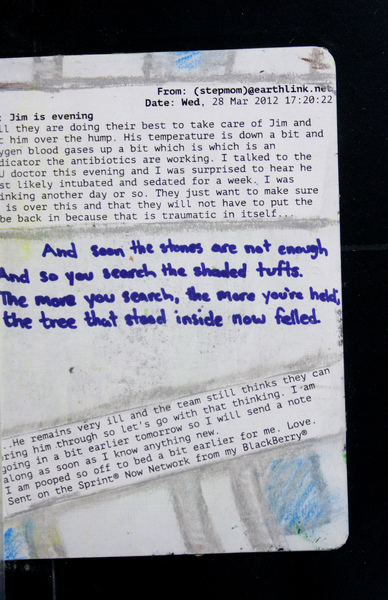 From: (stepmom)@earthlink.net
Date: Wed, 28 Mar 2012 17:20:22
: Jim is evening
ll they are doing their best to take care of Jim and
t him over the hump. His temperature is down a bit and
ygen blood gases up a bit which is which is an
dicator the antibiotics are working. I talked to the
U doctor this evening and I was surprised to hear he
st likely intubated and sedated for a week. I was
inking another day or so. They just want to make sure
is over this and that they will not have to put the
be back in because that is traumatic in itself...
And soon the stones are not enough
And so you search the shaded tufts.
The more you search, the more you're held,
the tree that stood inside now felled.
...He remains very ill and the team still thinks they can
ring him through so let's go with that thinking. I am
going in a bit earlier tomorrow so I will send a note
along as soon as I know anything new.
I am pooped so off to bed a bit earlier for me. Love.
Sent on the Sprint® Now Network from my BlackBerry®